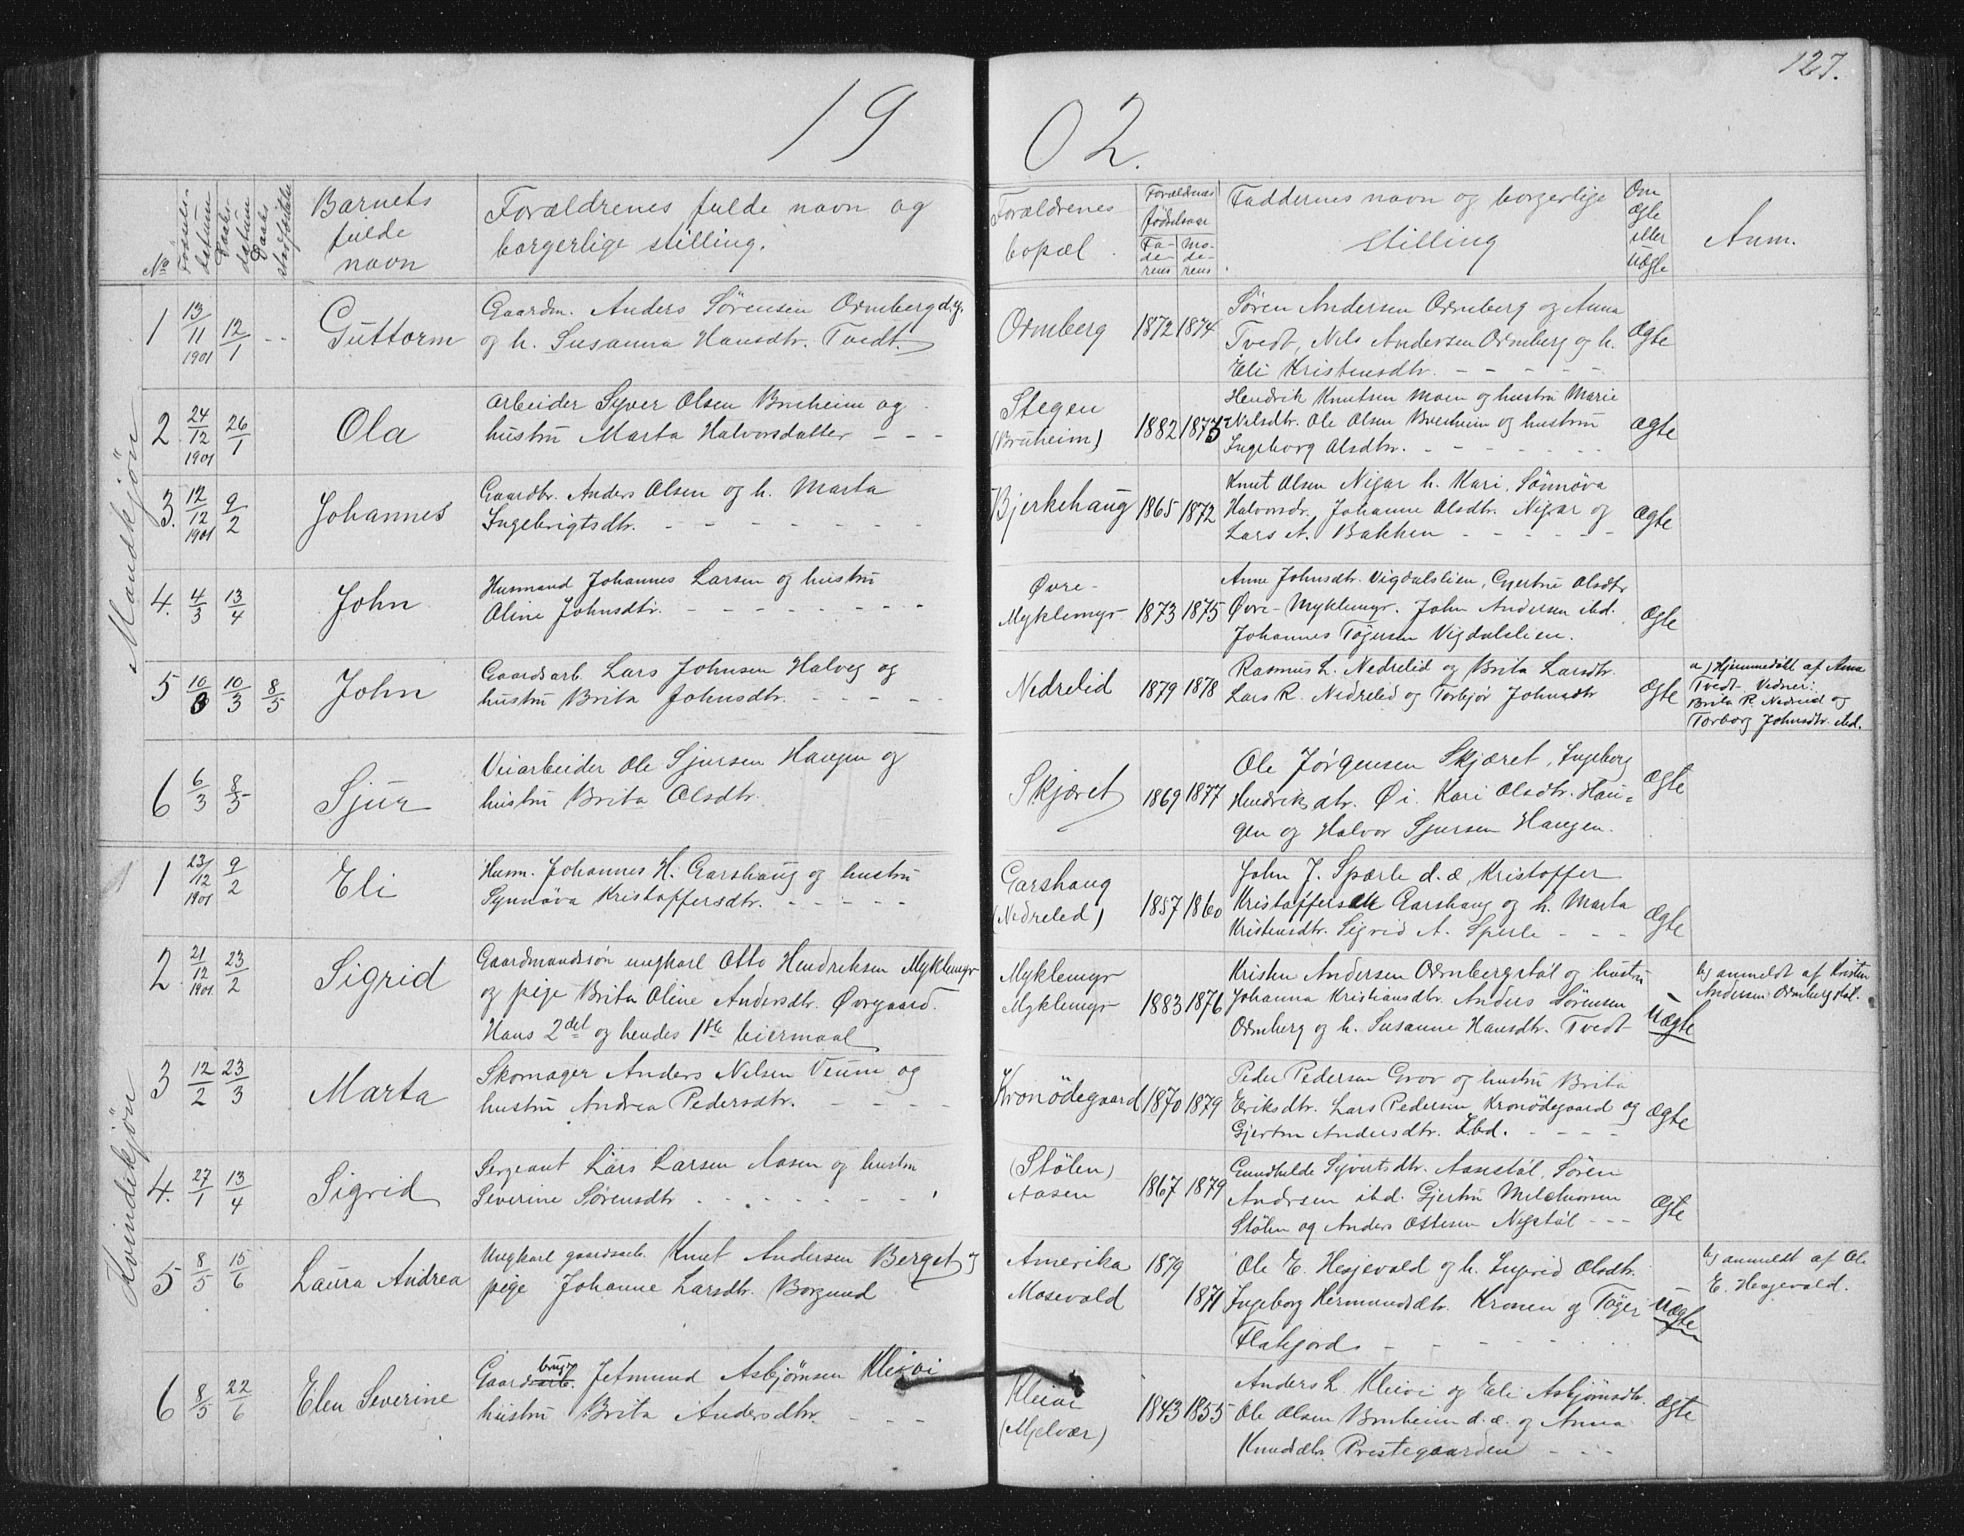 127.
19
02.
No
Fødsels-
datum
Daabs-
datum
Daabs
stadfæstelse
Barnets
fulde
navn
Forældrenes fulde navn og
borgerlige stilling.
Forældrenes
bopæl.
Forældrenes
fødselsaar
Fa-
de-
rens
Mo-
de-
rens
Faddernes navn og borgerlige
stilling
Om
ægte
eller
uægte
Anm.
Mandkjøn
1
13/11 1901
12/1
Guttorm
Gaardm. Anders Sørensen Ormberg d.y.
og h. Susanna Hansdtr. Tvedt.
Ormberg
1872
1874
Søren Andersen Ormberg og Anna
Tvedt, Nils Andersen Ormberg og h.
Eli Kristensdtr.
Ægte
2
24/12 1901
26/1
Ola
Arbeider Syver Olsen Bruheim og
hustru Marta Halvorsdatter
Stegen
(Bruheim)
1882
1875
Hendrik Knutsen Moen og hustru Marie
Nilsdtr. Ole Olsen Bruheim og hustru
Ingeborg Olsdtr.
Ægte
3.
12/12 1901
9/2
Johannes
Gaardbr. Anders Olsen og h. Marta
Ingebrigtsdtr.
Bjerkehaug
1865
1872
Knut Olsen Nigar h. Kari, Sønnøva
Halvorsdr. Johanne Olsdtr. Nigar og
Lars A. Bakken
Ægte
4.
4/3
13/4
John
Husmand Johannes Larsen og hustru
Oline Johnsdtr.
Øvre-
Myklemyr
1873
1875
Anne Johnsdtr. Vigdalslien, Gjertrue Olsdtr
Øvre-Myklemyr. John Andersen ibd.
Johannes Tøgersen Vigdalslien.
Ægte
5
10/3
10/3
8/5
John
Gaardsarb. Lars Johnsen Halveg og
hustru Brita Johnsdtr.
Nedrelid
1879
1878
Rasmus L. Nedrelid og Brita Larsdtr.
Lars R. Nedrelid og Torbjør Johnsdtr
Ægte
a) Hjemmedøbt af Anna
Tvedt. Vidner:
Brita R. Nedrelid og
Torborg Johnsdtr. ibd.
6
6/3
8/5
Sjur
Veiarbeider Ole Sjursen Haugen og
hustru Brita Olsdtr.
Skjæret
1869
1877
Ole Jørgensen Skjæret, Ingeborg
Hendriksdtr. Øi. Kari Olsdtr. Hau-
gen og Halvor Sjursen Haugen.
Ægte
Kvindekjøn
1
23/12 1901
9/2
Eli
Husm. Johannes H. Garshaug og hustru
Synnøva Kristoffersdtr.
Garshaug
(Nedreled)
1857
1860
John J. Spærle d.æ, Kristoffer
Kristoffersen Garshaug og h. Marta
Kristensdtr. Sigrid A. Sperle
Ægte
2
21/12 1901
23/2
Sigrid
Gaardmandssøn ungkarl Otto Hendriksen Myklemyr
og pige Brita Oline Andersdtr. Øvrgaard.
Hans 2det og hendes 1ste leiermaal
Myklemyr
Myklemyr
1883
1876
Kristen Andersen Ormbergstøl og hustru
Johanna Kristiansdtr. Anders Sørensen
Ormberg og h. Susanne Hansdtr. Tvedt
Uægte
b) anmeldt af Kristen
Andersen Ormbergstøl.
3
12/2
23/3
Marta
Skomager Anders Nilsen Veum og
hustru Andrea Pedersdtr.
Kronødegaard
1870
1879
Peder Pedersen Grov og hustru Brita
Eriksdtr. Lars Pedersen Kronødegaard og
Gjertru Andersdtr. Ibd.
Ægte
4.
27/1
13/4
Sigrid
Sergeant Lars Larsen Aasen og hustru
Severine Sørensdtr
(Stølen)
Aasen
1867
1879
Gundhilde Syvertsdtr. Aasestøl, Søren
Andersen ibd. Gjertru Melchiorsen
Stølen og Anders Ottesen Nystøl
Ægte
5
8/5
15/6
Laura Andrea
Ungkarl gaardsarb. Knut Andersen Berget og
pige Johanne Larsdtr. Borgund
Amerika
Mosevold
1879
1871
Ole E. Hesjevold og h. Ingrid Olsdtr.
Ingeborg Hermundsdtr. Kronen og Tøger
Flahjord
Uægte
b) anmeldt af Ole
E. Hesjevold.
6
8/5
22/6
Elen Severine
brug
Gaardsarb. Jetmund Asbjørnsen Kleivi
hustru Brita Andersdtr.
Kleivi
(Mjelvær)
1843
1855
Anders L. Kleivi og Eli Asbjørnsdtr.
Ole Olsen Bruheim d.æ. og Anna
Knudsdtr. Prestegaarden
Ægte